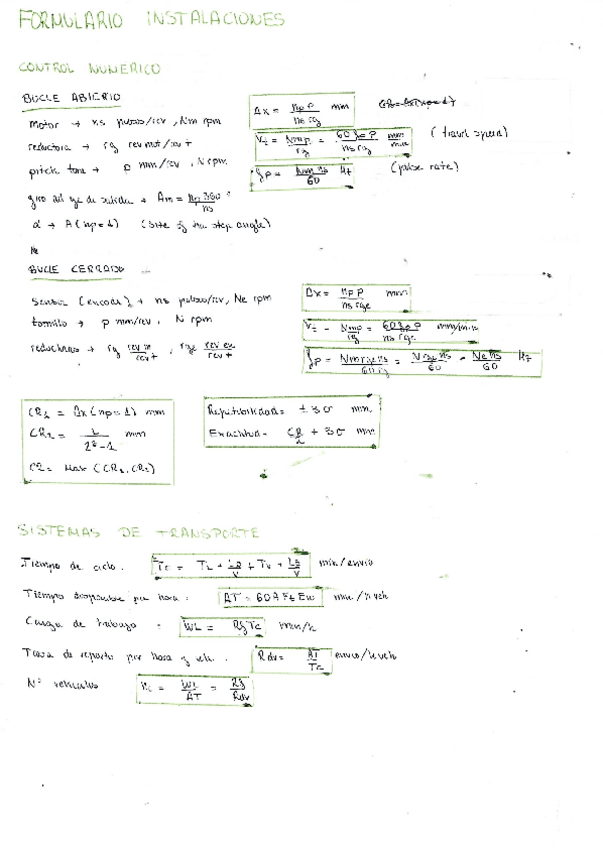 FORMULARIO INSTALACIONES
CONTROL NUMERICO
BUCLE ABIERTO
Motor → ns pulsos/rev, Nm rpm
reductora → rg rev mot/rev t
p mm/rev, N rpm
Δx = np p / ns rg mm
Vt = Nm p / rg = 60 fp p / ns rg mm/min (travel speed)
fp = Nm ns / 60 Hz (pulse rate)
giro del eje de salida → Am = np 360 / ns °
α → A (np=1) (step angle)
BUCLE CERRADO
Sensor (encoder) → ns pulsos/rev, Ne rpm
tornillo → p mm/rev, N rpm
Δx = np p / ns rge mm
Vt = Nm p / rg = 60 fp p / ns rge mm/min
fp = Nm rge ns / 60 rg = N rge ns / 60 = Ne ns / 60 Hz
CR1 = Δx (np=1) mm
CR2 = L / 2^B - 1 mm
CR = Max (CR1, CR2)
Repetibilidad = ± 3σ mm
Exactitud = CR/2 + 3σ mm
SISTEMAS DE TRANSPORTE
Tiempo de ciclo: Tc = TL + Ld/v + Tu + Le/v min/envio
Tiempo disponible por hora: AT = 60 A Ft Ew min/h veh
Carga de trabajo: WL = Rf Tc min/h
Tasa de reparto por hora y veh. Rdv = AT/Tc envio/h veh
Nº vehiculos nc = WL/AT = Rf/Rdv